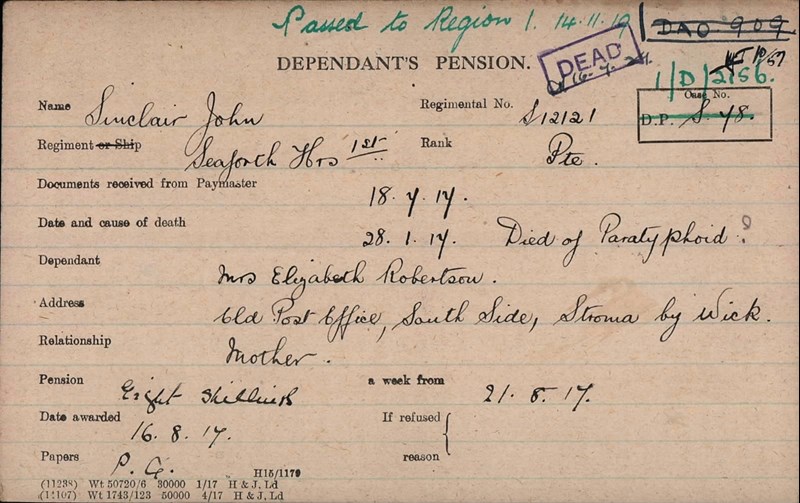 Passed to Region 1. 14.11.19
DAO 909
DEPENDANT'S PENSION.
DEAD
16.7.
10/57
1/D/2156.
Case No.
D.P. S. 48.
Name Sinclair John Regimental No. S12121
Regiment or Ship Seaforth Hrs 1st Rank Pte.
Documents received from Paymaster 18.7.17.
Date and cause of death 28.1.17. Died of Paratyphoid ?
Dependant Mrs Elizabeth Robertson.
Address Old Post Office, South Side, Stroma by Wick.
Relationship Mother.
Pension Eight shillings a week from 21.8.17.
Date awarded 16.8.17. If refused
reason
Papers P.G.
H15/1179
(11238) Wt 50720/6 30000 1/17 H & J, Ld
(14107) Wt 1743/123 50000 4/17 H & J, Ld